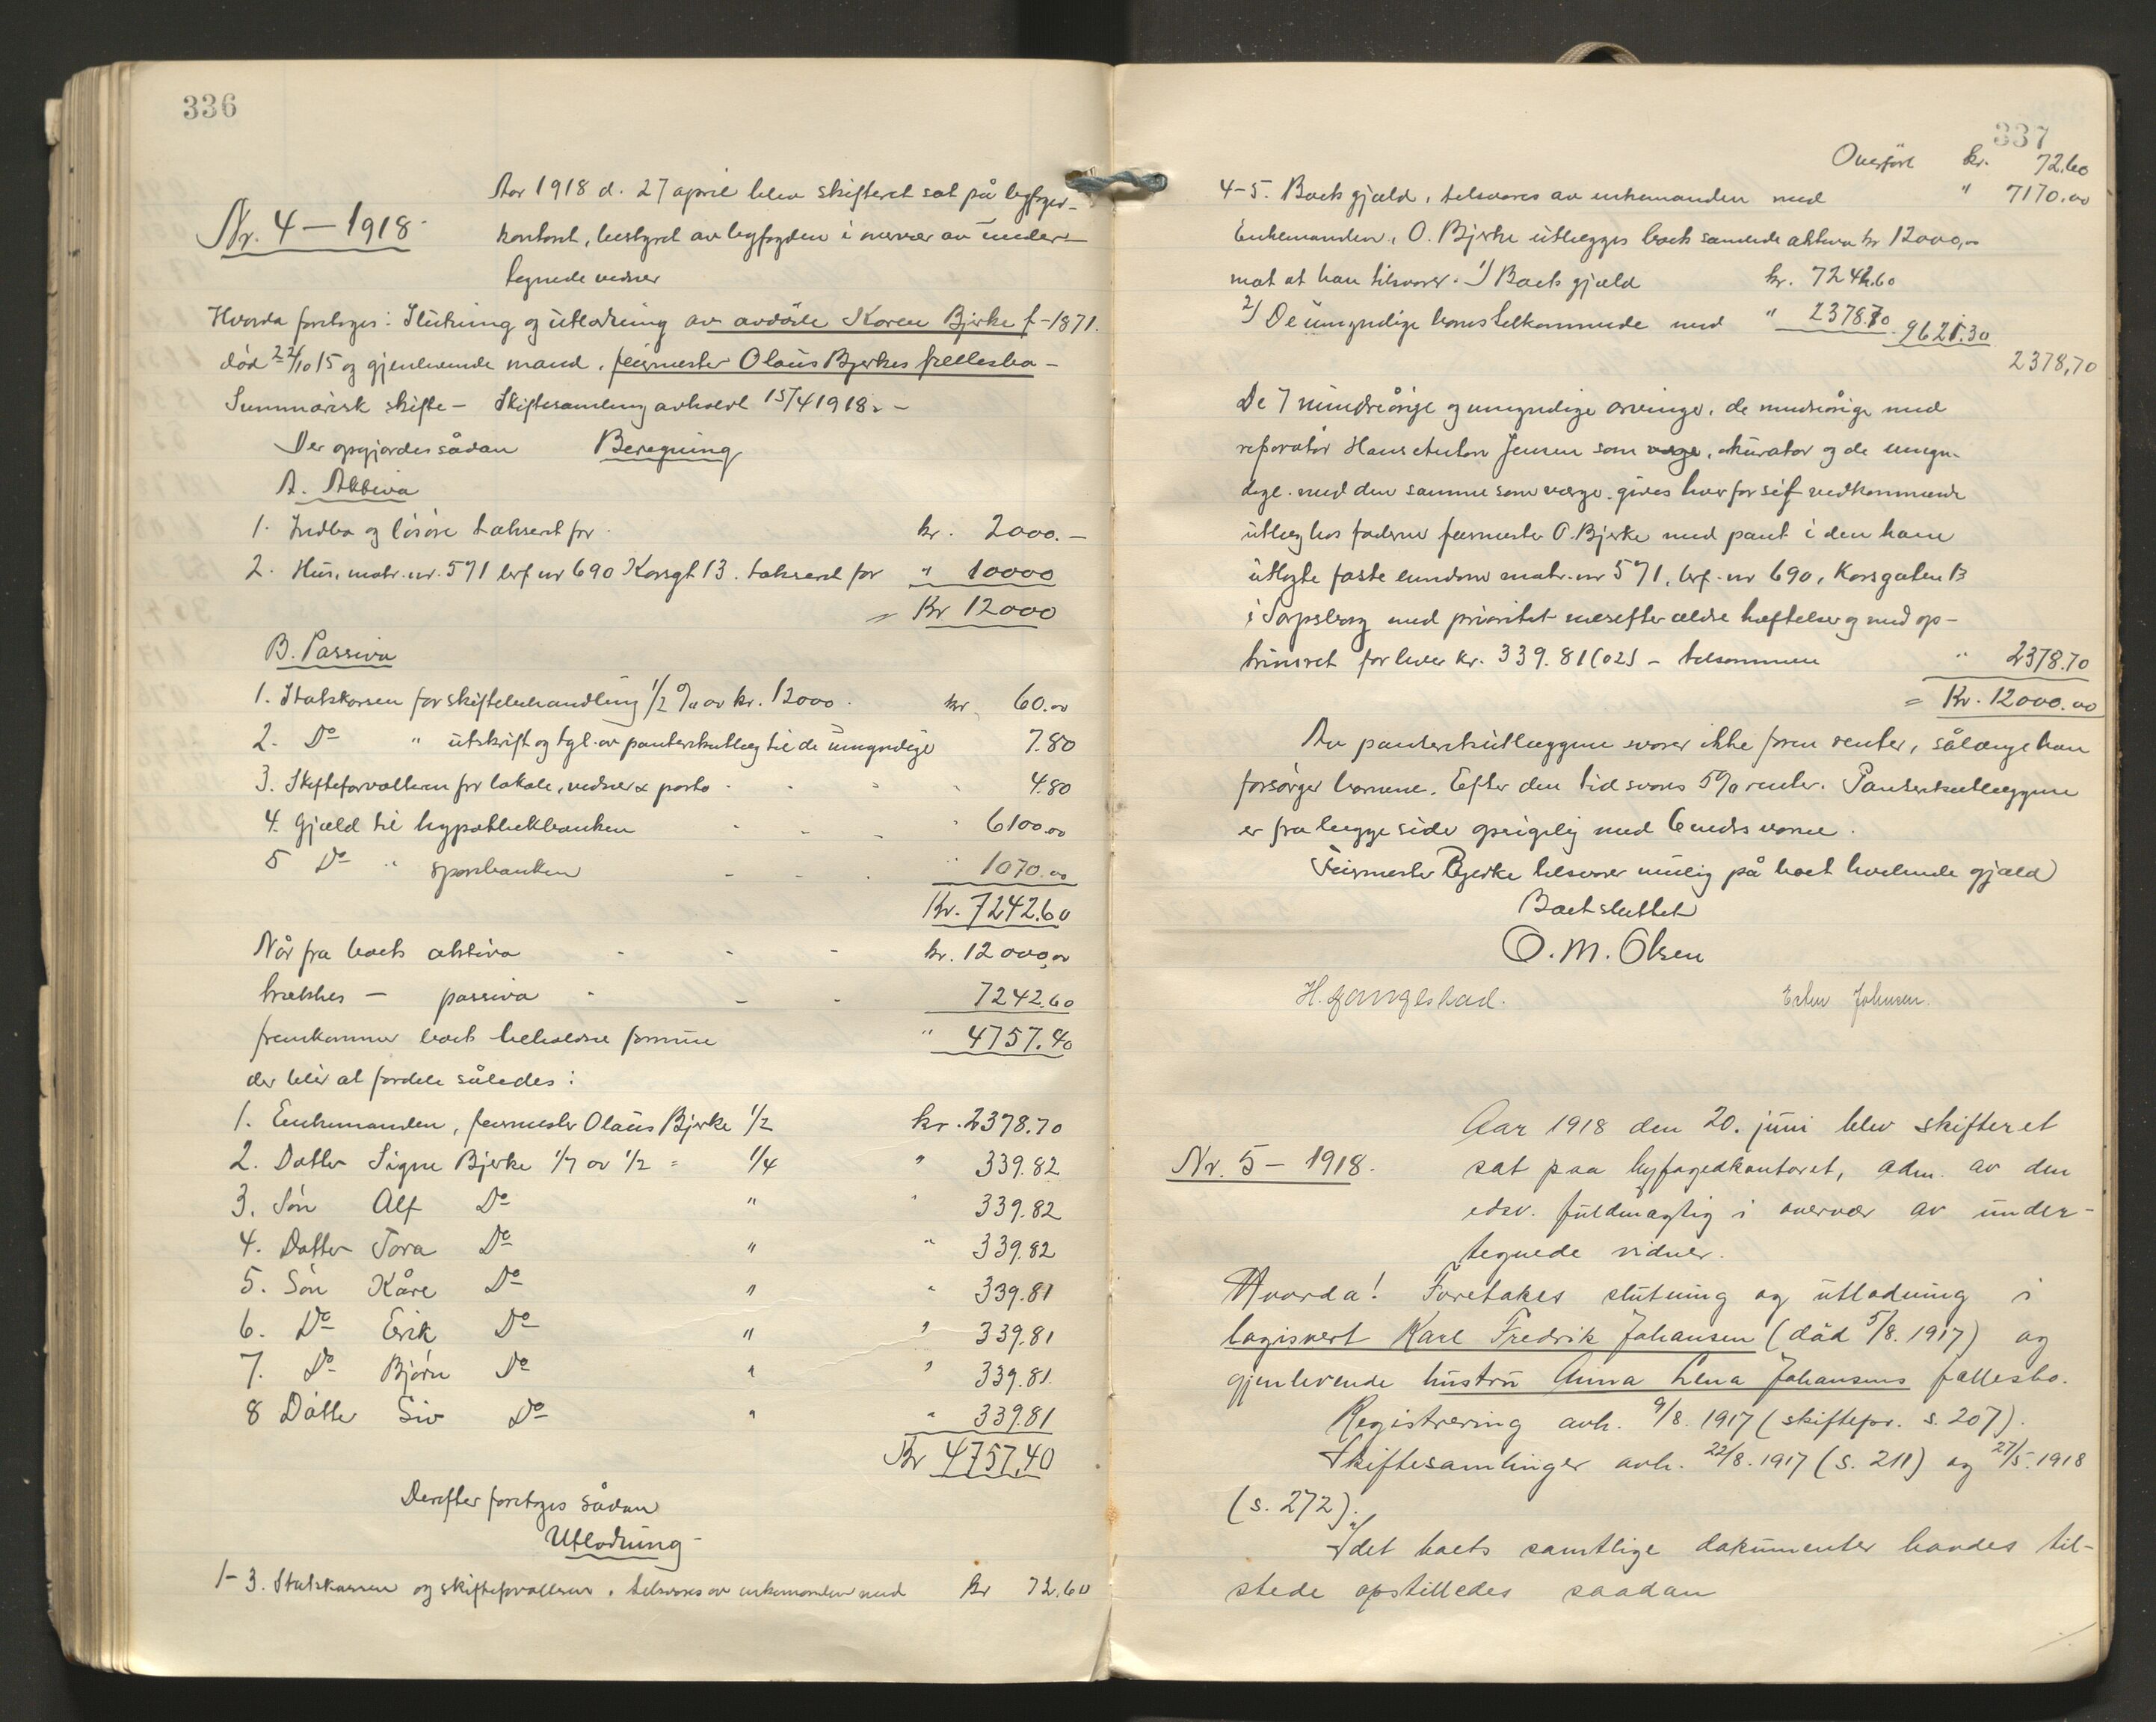 336
Nr. 4 – 1918
Aar 1918 d. 27 april blev skifteret sat på byfoged-
kontoret, bestyret av byfogden i overvær av under-
tegnede vidner
Hvorda foretoges: Slutning og utlodning av avdøde Karen Bjerke f – 1871.
död 22/10 15 og gjenlevende mand, feiermester Olaüs Bjerkes fællesbo –
Summarisk skifte – Skiftesamling avholdt 15/4 1918. –
Der opgjordes sådan Beregning
A. Aktiva
1. Indbo og lösöre taksert for kr. 2000. –
2. Hus, matr. nr. 571 brf nr 690 Korsgt 13. taksert for " 10000
= Kr 12000
B. Passiva
1. Statskassen for skiftebehandling 1/2 % av kr. 12000. kr. 60.00
2. Do " utskrift og tgl. av panterhutlæg til de ümyndige 7.80
3. Skifteforvalteren for lokale, vidner & porto 4.80
4. Gjæld til hypothekbanken " 6100.00
5 Do " sparebanken " 1070.00
Kr. 7242.60
Når fra boets aktiva kr. 12000,00
trækkes – passiva 7242.60
fremkommer boets beholdne formüe " 4757.40
der blir at fordele således:
1. Enkemanden, feiermester Olaüs Bjerke 1/2 kr. 2378.70
2. Datter Signe Bjerke 1/7 av 1/2 = 1/4 " 339.82
3. Sön Alf Do " " 339.82
4. Datter Tora Do " " 339.82
5. Sön Kåre Do " " 339.81
6. Do Erik Do " " 339.81
7. Do Björn Do " " 339.81
8 Datter Siv Do " " 339.81
Kr 4757,40
Derefter foretoges sådan
Utlodning
1–3. Statskassen og skifteforvalteren, tilsvares av enkemanden med kr 72.60
337
Overfört kr. 72.60
4–5. Boets gjæld, tilsvares av enkemanden med " 7170.00
Enkemanden, O. Bjerke utlægges boets samlede aktiva kr 12000,00
mot at han tilsvarer. 1) Boets gjæld kr. 7242.60
2) De ümyndige barns tilkommende med " 2378.70 9621.30
2378,70
De 7 mindreårige og umyndige arvinger, de mindreårige med
reparatør Hans Anton Jensen som kurator og de umyn-
dige med den samme som værge, gives hver for sit vedkommende
ütlæg hos faderen feiermester O. Bjerke med pant i den ham
ütlagte faste eiendom matr. nr 571, brf. nr 690, Korsgaten 13
i Sarpsborg med prioritet næsefter ældre hæftelser og med op-
trinsret for hver kr. 339.81 (02) – tilsammen " 2378.70
= Kr. 12000.00
Av panterhutlæggene svarer ikke faren renter, sålænge han
forsörger barnene. Efter den tid svares 5% renter. Panterhutlæggene
er fra begge sider opsigelig med 6 mdrs varsel.
Feiermester Bjerke tilsvarer mülig på boet hvilende gjæld
Boet sluttet
O. M. Olsen
H. Gangestad. Johnsen.
Nr. 5 – 1918.
Aar 1918 den 20. jüni blev skifteret
sat paa byfogedkontoret, adm. av den
edsv. füldmægtig i overvær av ünder-
tegnede vidner.
Hvorda! Foretokes slutning og ütlodning i
logisvert Karl Fredrik Johansen (död 5/8. 1917) og
gjenlevende hüstrü Anna Lena Johansens fællesbo.
Registrering avh. 9/8. 1917 (skiftepr. s. 207).
Skiftesamlinger avh. 22/8. 1917 (s. 211) og 27/5. 1918
(s. 272).
Idet boets samtlige dokümenter havdes til-
stede opstilledes saadan